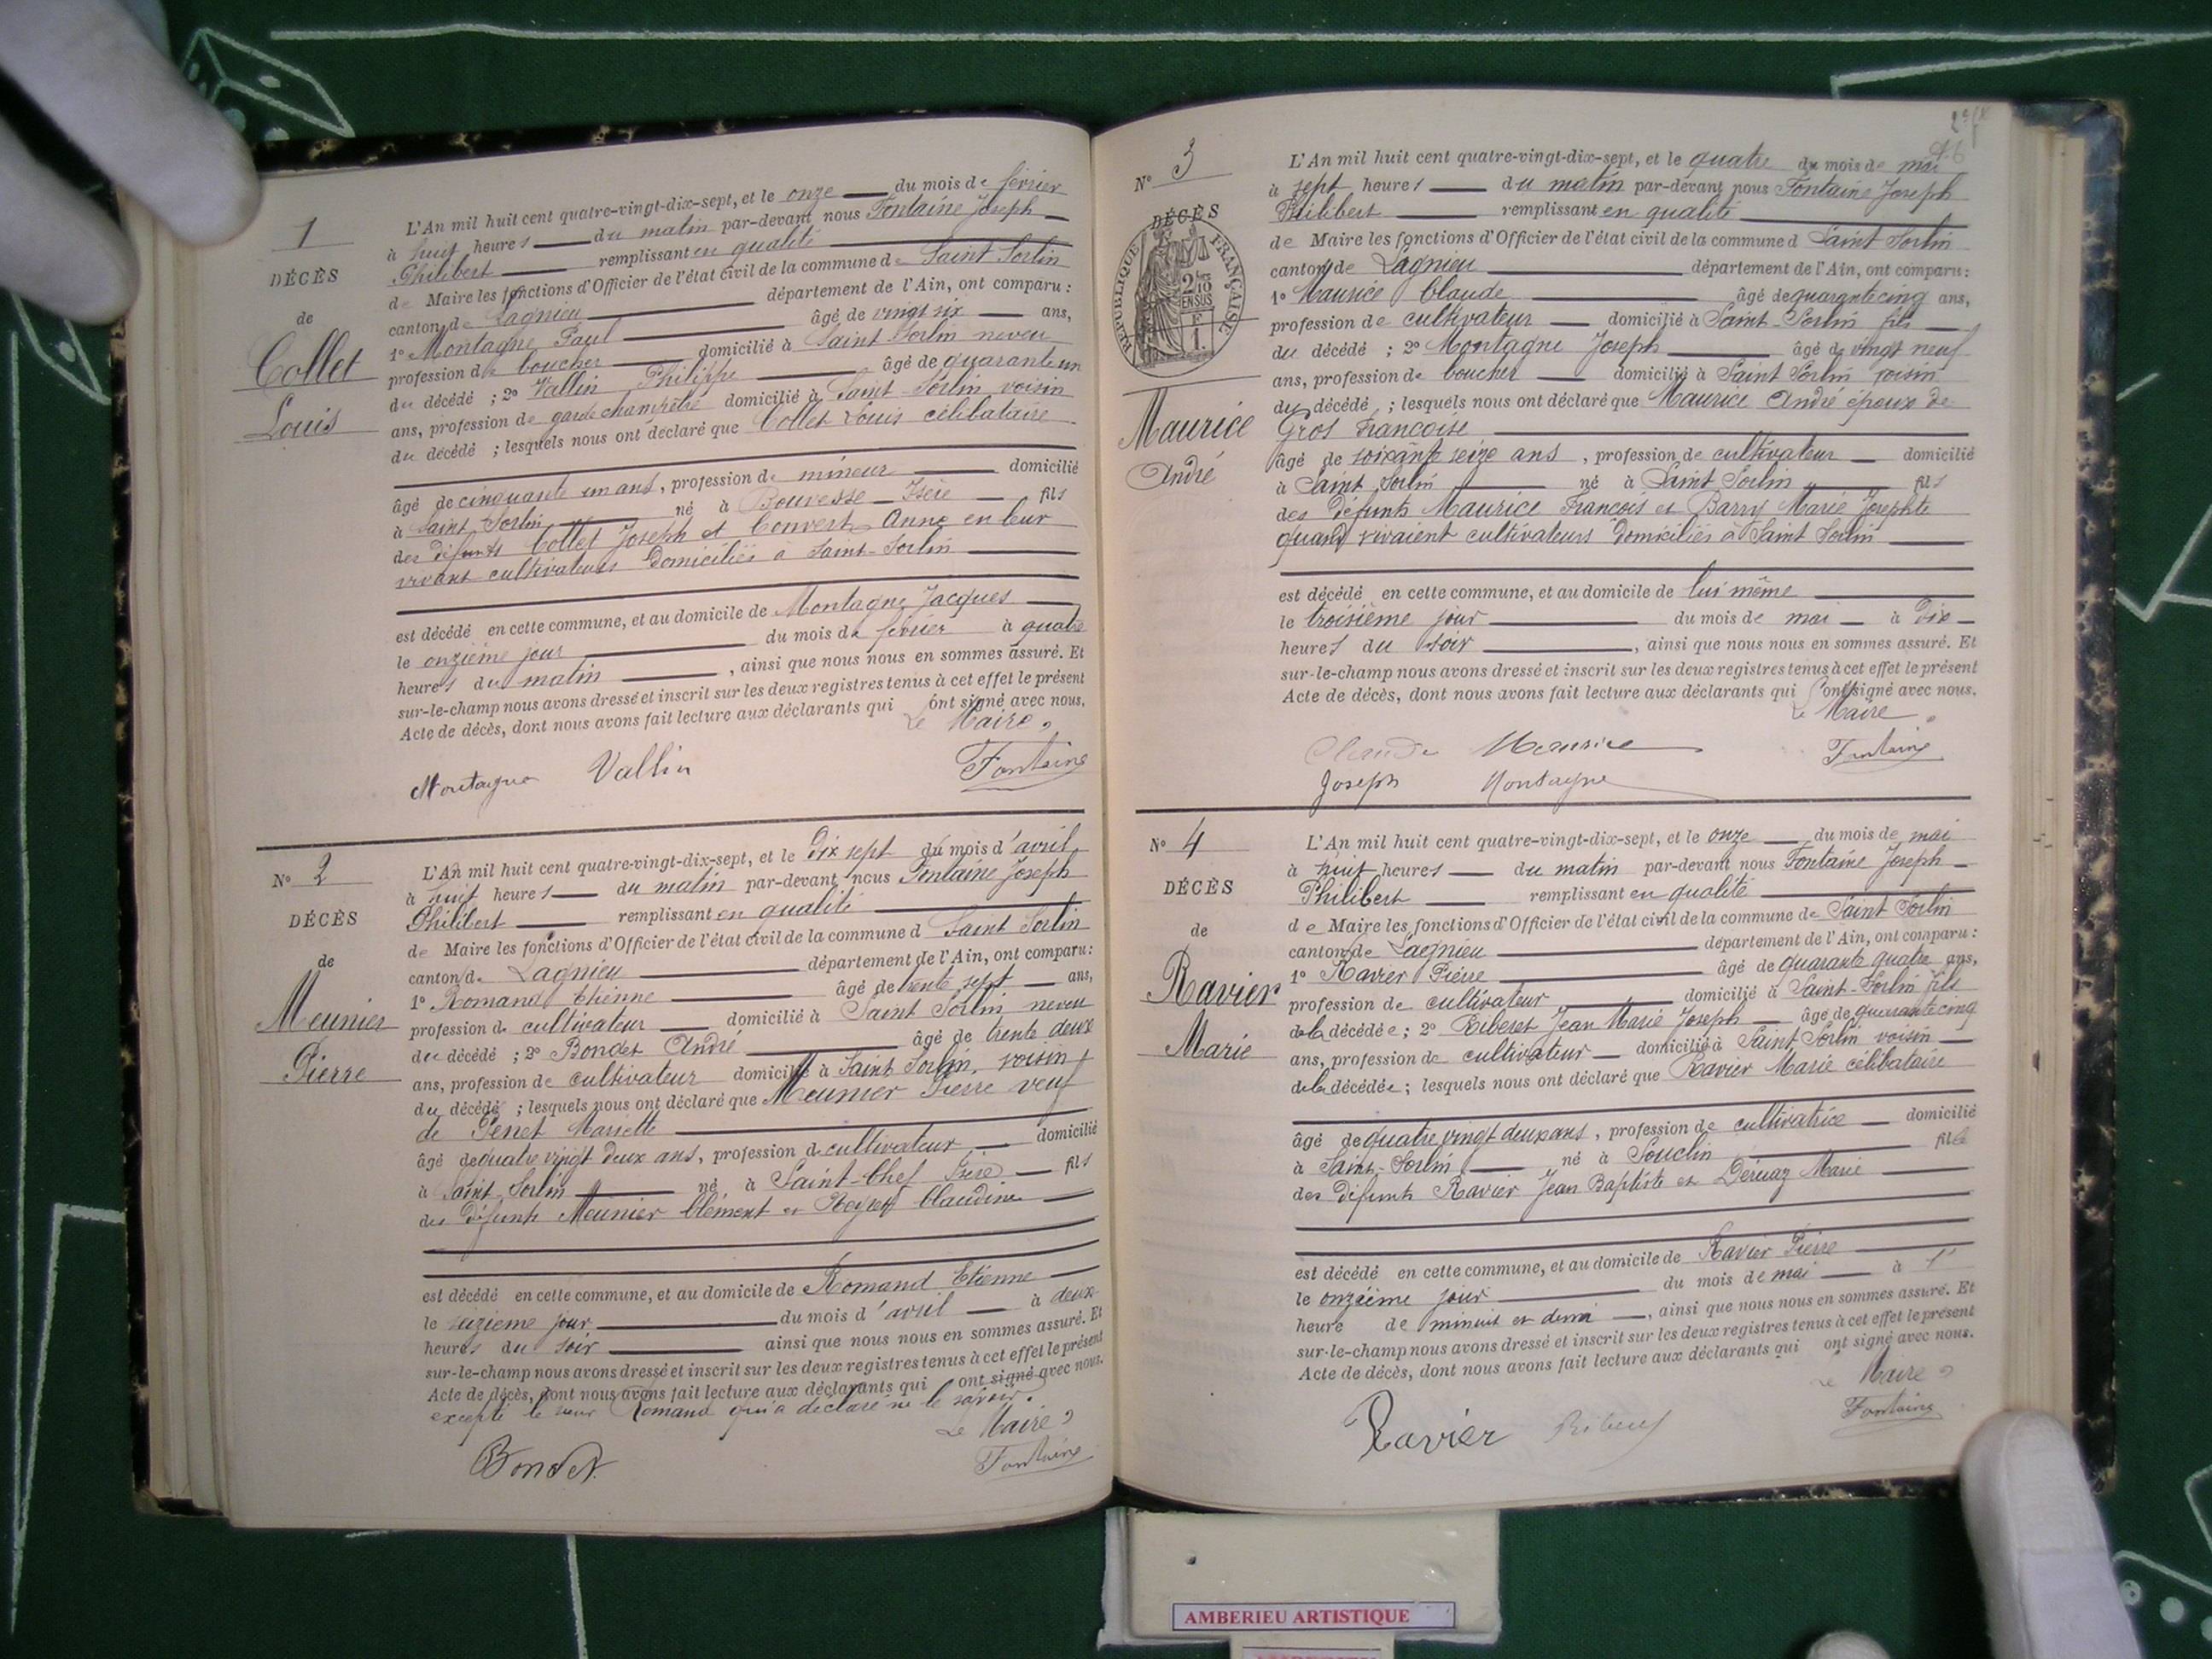 1
DÉCÈS
de
Collet
Louis
L'An mil huit cent quatre-vingt-dix-sept, et le onze du mois de février
à huit heures du matin par-devant nous Fontaine Joseph
Philibert remplissant en qualité
de Maire les fonctions d'Officier de l'état civil de la commune de Saint Sorlin
canton de Lagnieu département de l'Ain, ont comparu :
1º Montagne Paul âgé de vingt six ans,
profession de boucher domicilié à Saint Sorlin neveu
du décédé ; 2º Vallin Philippe âgé de quarante un
ans, profession de garde champêtre domicilié à Saint-Sorlin voisin
du décédé ; lesquels nous ont déclaré que Collet Louis célibataire
âgé de cinquante un ans, profession de mineur domicilié
à Saint-Sorlin né à Bouvesse Isère fils
des défunts Collet Joseph et Convert Anne en leur
vivant cultivateurs domiciliés à Saint-Sorlin
est décédé en cette commune, et au domicile de Montagne Jacques
le onzième jour du mois de février à quatre
heures du matin, ainsi que nous nous en sommes assuré. Et
sur-le-champ nous avons dressé et inscrit sur les deux registres tenus à cet effet le présent
Acte de décès, dont nous avons fait lecture aux déclarants qui ont signé avec nous.
Le Maire,
Montagne Vallin Fontaine
Nº 2
DÉCÈS
de
Meunier
Pierre
L'An mil huit cent quatre-vingt-dix-sept, et le dix sept du mois d'avril
à huit heures du matin par-devant nous Fontaine Joseph
Philibert remplissant en qualité
de Maire les fonctions d'Officier de l'état civil de la commune d Saint Sorlin
canton de Lagnieu département de l'Ain, ont comparu :
1º Romand Etienne âgé de trente sept ans,
profession de cultivateur domicilié à Saint Sorlin neveu
du décédé ; 2º Bondet André âgé de trente deux
ans, profession de cultivateur domicilié à Saint Sorlin, voisin
du décédé ; lesquels nous ont déclaré que Meunier Pierre veuf
de Genet Mariette
âgé de quatre vingt deux ans, profession de cultivateur domicilié
à Saint-Sorlin né à Saint-Chef Isère fils
des défunts Meunier Clément et Claudine
est décédé en cette commune, et au domicile de Romand Etienne
le seizième jour du mois d'avril à deux
heures du soir ainsi que nous nous en sommes assuré. Et
sur-le-champ nous avons dressé et inscrit sur les deux registres tenus à cet effet le présent
Acte de décès, dont nous avons fait lecture aux déclarants qui ont signé avec nous.
excepté le sieur Romand qui a déclaré ne le savoir.
Le Maire,
Bondet Fontaine
Nº 3
DÉCÈS
RÉPUBLIQUE FRANÇAISE
2/10
EN SUS
1.
Maurice
André
L'An mil huit cent quatre-vingt-dix-sept, et le quatre du mois de mai
à sept heures du matin par-devant nous Fontaine Joseph
Philibert remplissant en qualité
de Maire les fonctions d'Officier de l'état civil de la commune d Saint Sorlin
canton de Lagnieu département de l'Ain, ont comparu :
1º Maurice Claude âgé de quarante cinq ans,
profession de cultivateur domicilié à Saint-Sorlin fils
du décédé ; 2º Montagne Joseph âgé de vingt neuf
ans, profession de boucher domicilié à Saint Sorlin voisin
du décédé ; lesquels nous ont déclaré que Maurice André époux de
Gros Françoise
âgé de soixante seize ans, profession de cultivateur domicilié
à Saint Sorlin né à Saint Sorlin fils
des défunts Maurice François et Barry Marie Josephte
quand vivaient cultivateurs domiciliés à Saint Sorlin
est décédé en cette commune, et au domicile de lui même
le troisième jour du mois de mai à dix
heures du soir, ainsi que nous nous en sommes assuré. Et
sur-le-champ nous avons dressé et inscrit sur les deux registres tenus à cet effet le présent
Acte de décès, dont nous avons fait lecture aux déclarants qui ont signé avec nous.
Le Maire,
Claude Maurice Fontaine
Joseph Montagne
Nº 4
DÉCÈS
de
Ravier
Marie
L'An mil huit cent quatre-vingt-dix-sept, et le onze du mois de mai
à huit heures du matin par-devant nous Fontaine Joseph
Philibert remplissant en qualité
de Maire les fonctions d'Officier de l'état civil de la commune de Saint Sorlin
canton de Lagnieu département de l'Ain, ont comparu :
1º Ravier Pierre âgé de quarante quatre ans,
profession de cultivateur domicilié à Saint-Sorlin fils
de la décédée ; 2º Riberet Jean Marie Joseph âgé de quarante cinq
ans, profession de cultivateur domicilié à Saint Sorlin voisin
de la décédée ; lesquels nous ont déclaré que Ravier Marie célibataire
âgé de quatre vingt deux ans, profession de cultivatrice domicilié
à Saint-Sorlin né à Souclin fille
des défunts Ravier Jean Baptiste et Deruaz Marie
est décédé en cette commune, et au domicile de Ravier Pierre
le onzième jour du mois de mai à l'
heure de minuit et demi, ainsi que nous nous en sommes assuré. Et
sur-le-champ nous avons dressé et inscrit sur les deux registres tenus à cet effet le présent
Acte de décès, dont nous avons fait lecture aux déclarants qui ont signé avec nous.
Le Maire,
Ravier Fontaine
AMBERIEU ARTISTIQUE